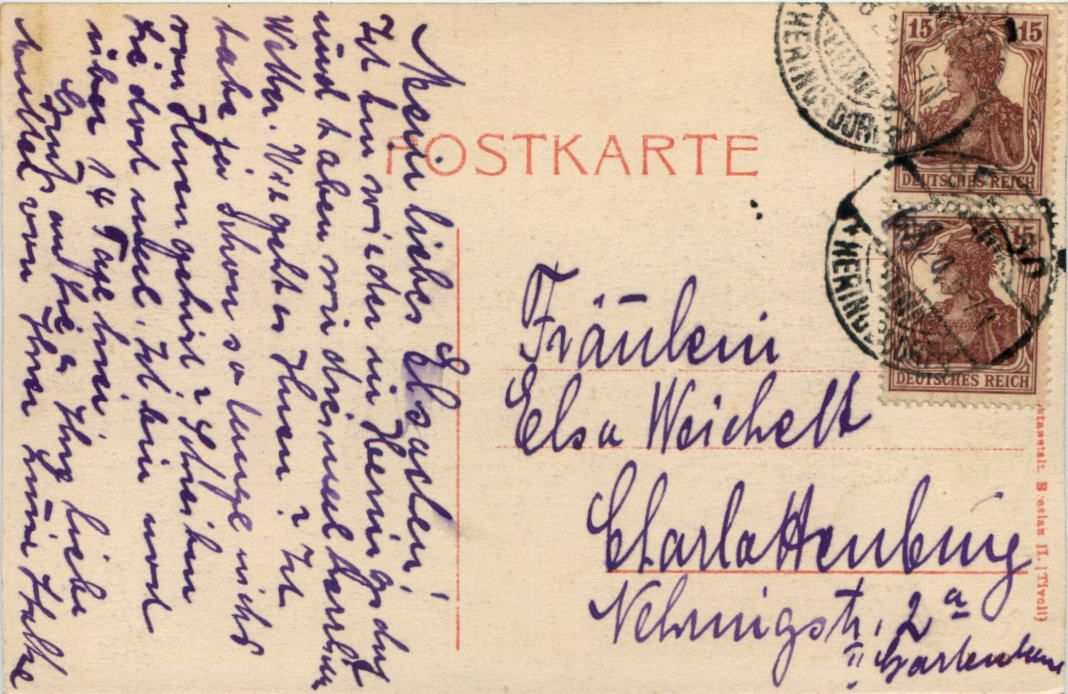 POSTKARTE
15 15
DEUTSCHES REICH
15
DEUTSCHES REICH
HERINGSDORF
HERINGSDORF
Mein liebes Elsachen!
Ich bin wieder in Heringsdorf
und haben wir dreimal herrlich
Wetter. Wie geht es Ihnen? Ich
habe ja schon so lange nichts
von Ihnen gehört? Schreiben
Sie doch mal. Ich bin noch
über 14 Tage hier
Gruß auch Ihre liebe
Mutter von Ihrer
Fräulein
Elsa Weichelt
Charlottenburg
Nehringstr. 2a
II Gartenhaus
Breslau II. (Tivoli)